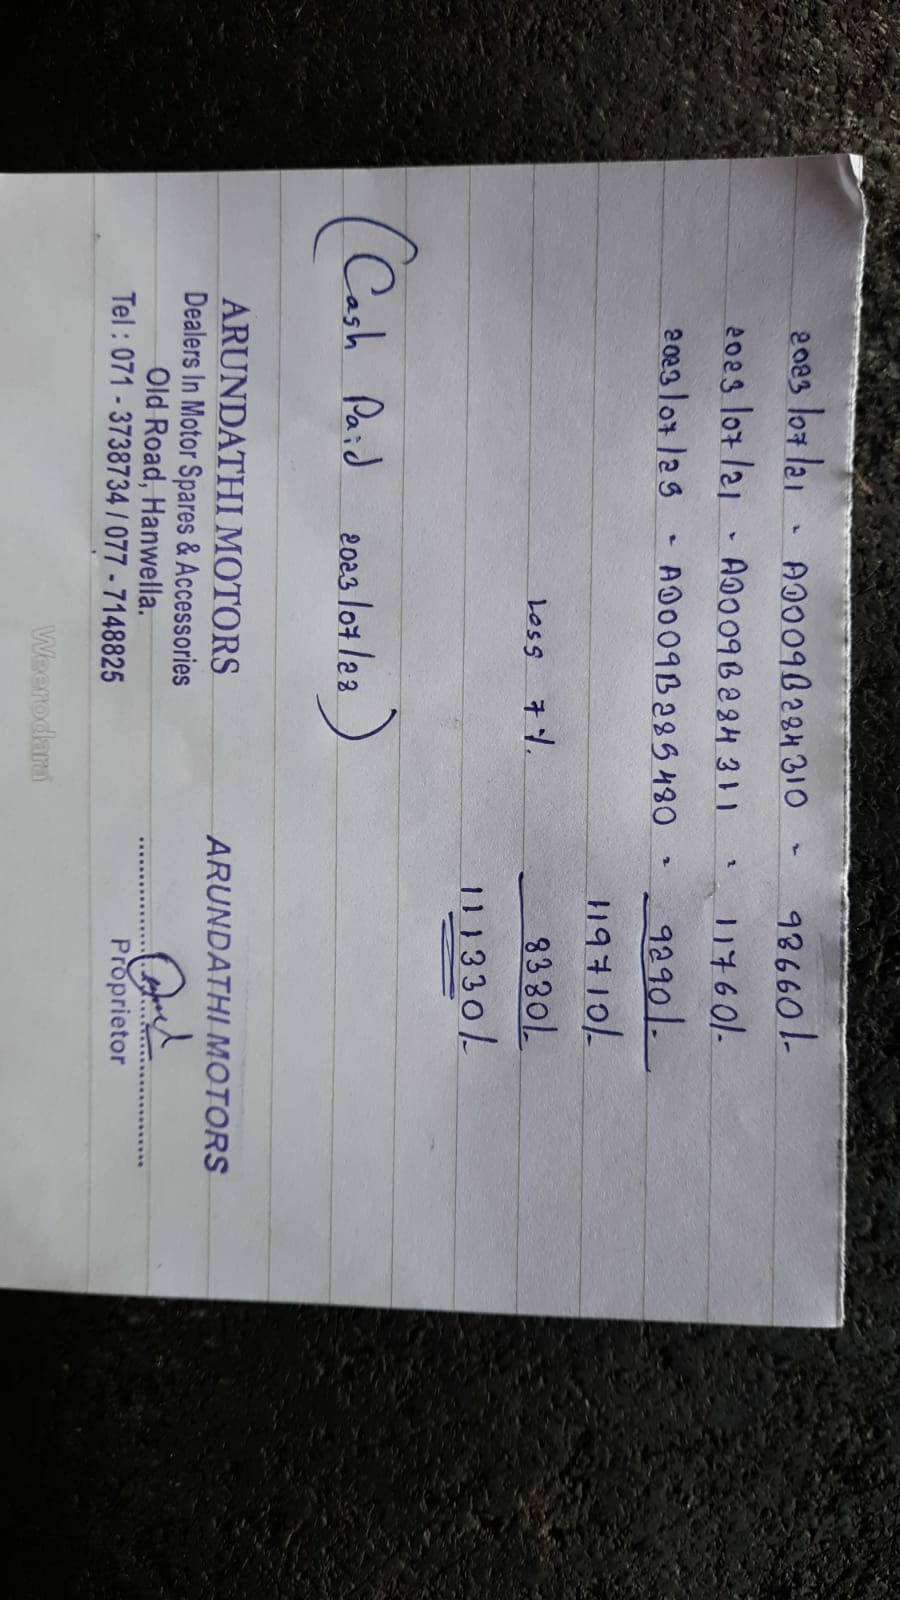 2023/07/21 - AD009B284310 - 98660/-
2023/07/21 - AD009B284311 - 11760/-
2023/07/25 - AD009B285480 - 9290/-
119710/-
Less 7% 8380/-
111330/-
(Cash Paid 2023/07/28)
ARUNDATHI MOTORS
Dealers In Motor Spares & Accessories
Old Road, Hanwella.
Tel : 071 - 3738734 / 077 - 7148825
ARUNDATHI MOTORS
Proprietor
Weerodara